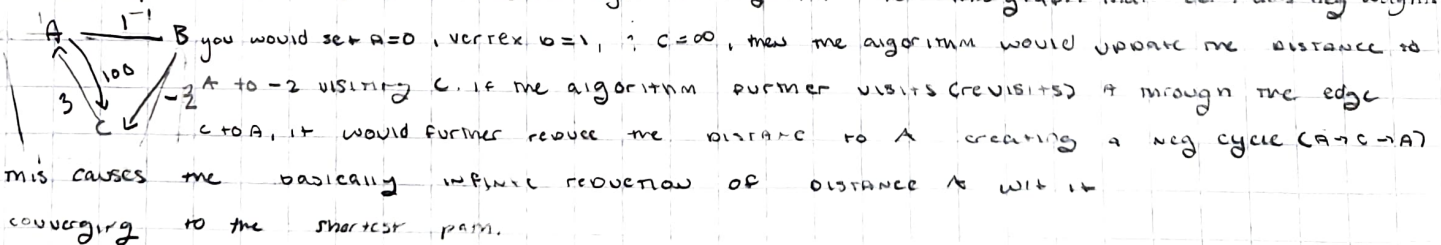 A 1 -1 B you would set A=0, vertex b=1, ; C=∞, then the algorithm would update the distance to
100
3 -2 A to -2 visiting C. If the algorithm further visits (revisits) A through the edge
C C to A, it would further reduce the distanc to A creating a neg cycle (A→C→A)
this causes the basically infinite reduction of distance A wit it
converging to the shortest path.